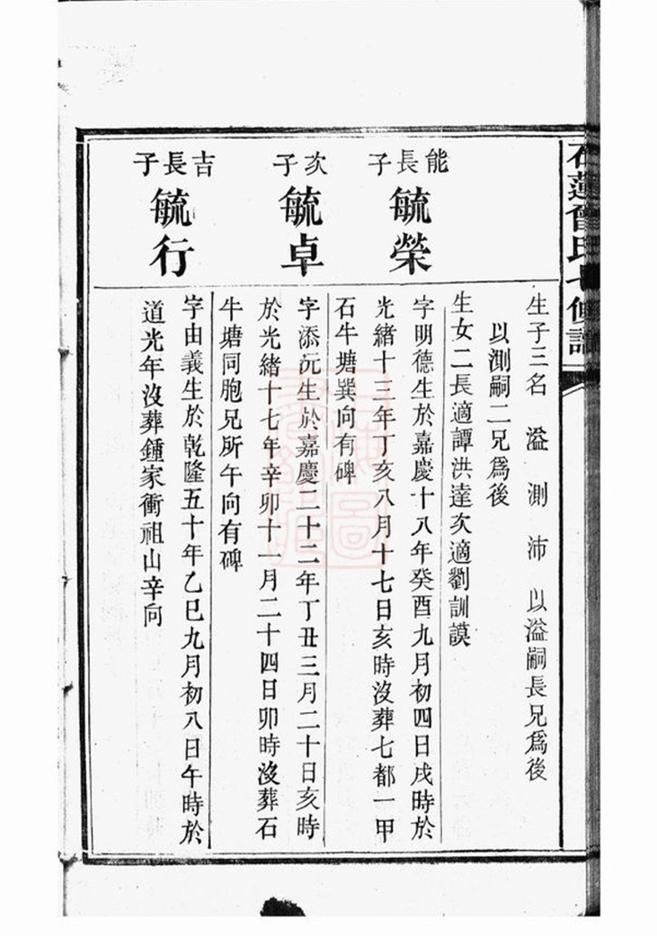 石蓮曾氏七修譜
生子三名 溢 測 沛 以溢嗣長兄爲後
以測嗣二兄爲後
生女二長適譚洪達次適劉訓謨
能長子
毓榮
字明德生於嘉慶十八年癸酉九月初四日戌時於
光緒十三年丁亥八月十七日亥時沒葬七都一甲
石牛塘巽向有碑
次子
毓卓
字添沅生於嘉慶二十二年丁丑三月二十日亥時
於光緒十七年辛卯十一月二十四日卯時沒葬石
牛塘同胞兄所午向有碑
吉長子
毓行
字由義生於乾隆五十年乙巳九月初八日午時於
道光年沒葬鍾家衝祖山辛向